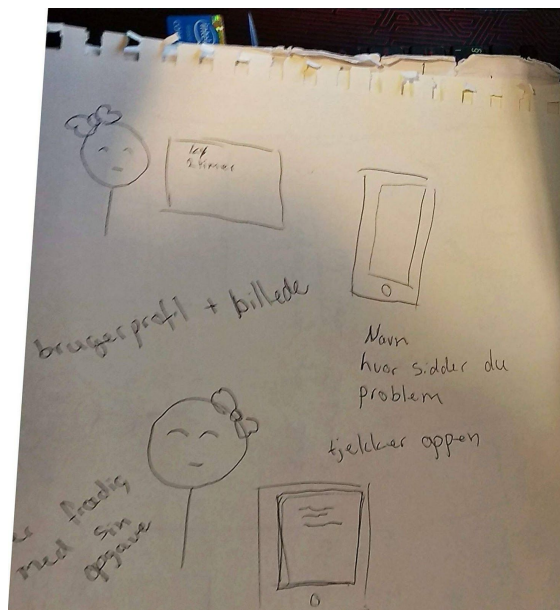 2 timer
brugerprofil + billede
Navn
hvor sidder du
problem
tjekker appen
er frædig
med sin
opgave